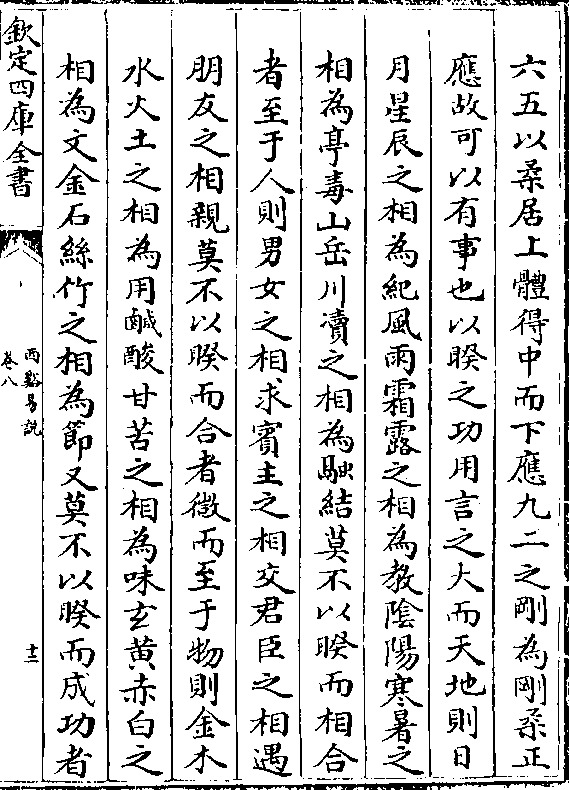 六五以柔居上體得中而下應九二之剛為剛柔正
應故可以有事也以睽之功用言之大而天地則日
月星辰之相為紀風雨霜露之相為教陰陽寒暑之
相為亭毒山岳川瀆之相為融結莫不以睽而相合
者至于人則男女之相求賓主之相交君臣之相遇
朋友之相親莫不以睽而合者微而至于物則金木
水火土之相為用鹹酸甘苦之相為味玄黄赤白之
相為文金石絲竹之相為節又莫不以睽而成功者
欽定四庫全書
西谿易說
卷八
十三